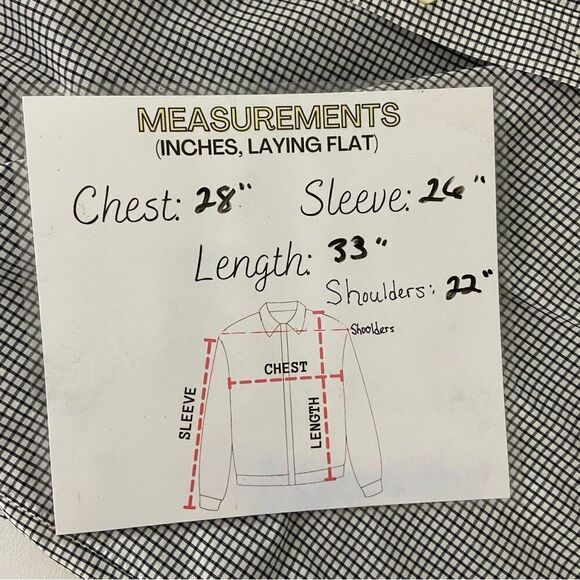 MEASUREMENTS
(INCHES, LAYING FLAT)
Chest: 28" Sleeve: 26"
Length: 33"
Shoulders: 22"
Shoolders
CHEST
SLEEVE
LENGTH